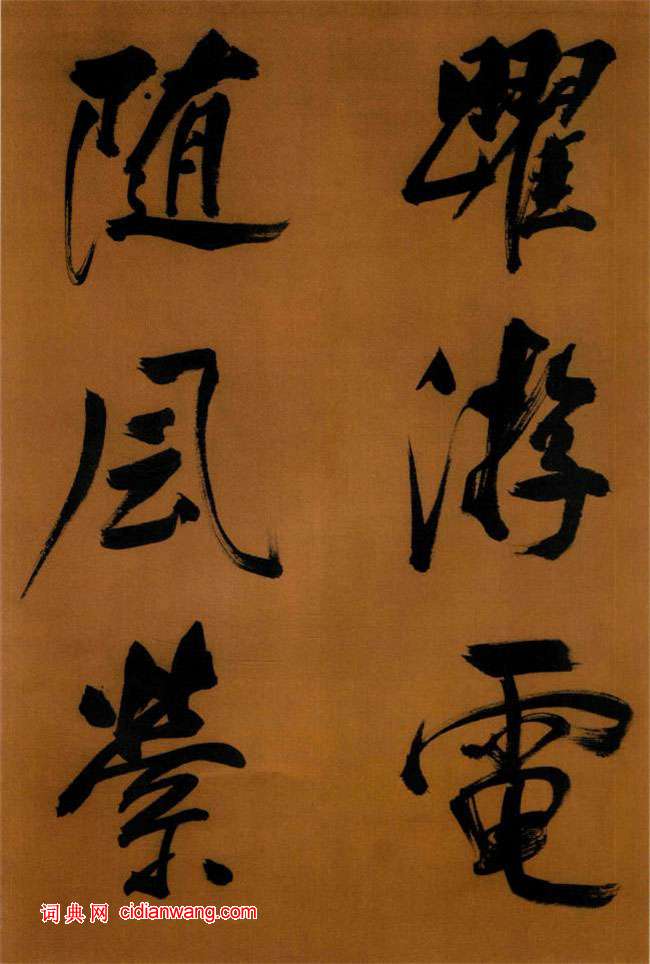 曜游電
随風縈
词典网 cidianwang.com